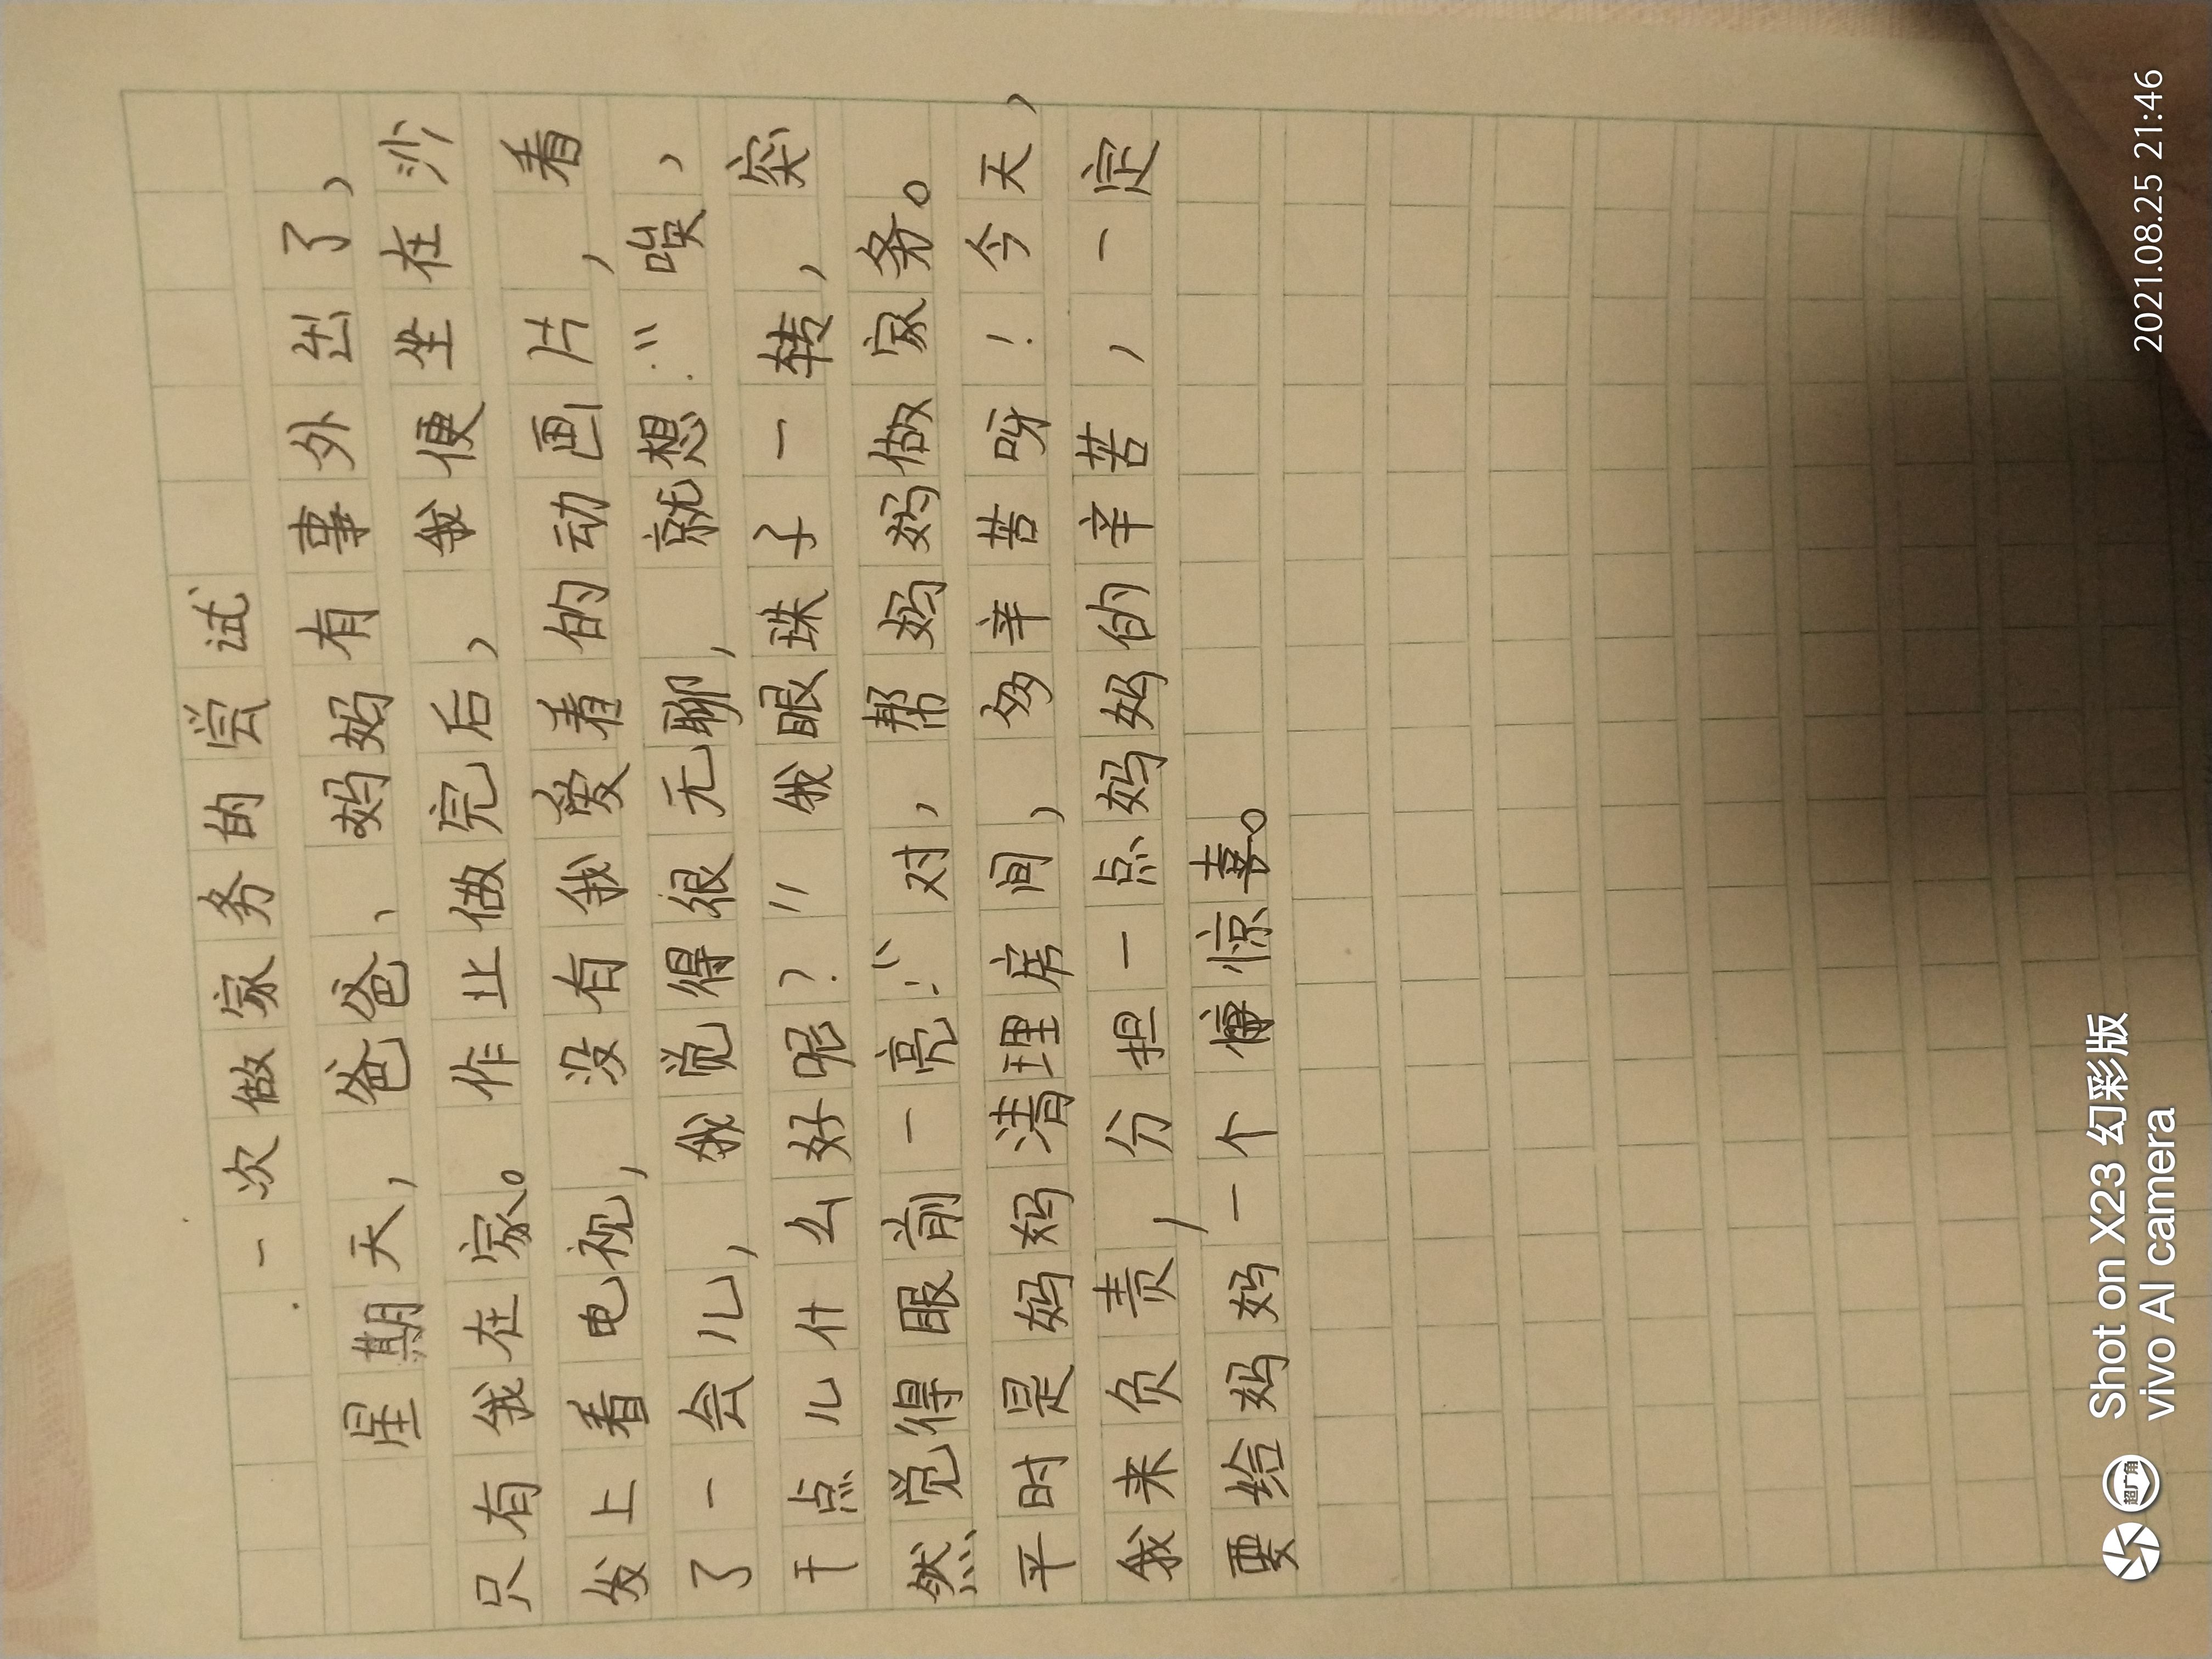 一次做家务的尝试
星期天，爸爸、妈妈有事外出了，
只有我在家。作业做完后，我便坐在沙
发上看电视，没有我爱看的动画片，看
了一会儿，我觉得很无聊，就想：“唉，
干点儿什么好呢？”我眼珠子一转，突
然觉得眼前一亮：“对，帮妈妈做家务。
平时是妈妈清理房间，多辛苦呀！今天，
我来负责，分担一点妈妈的辛苦，一定
要给妈妈一个惊喜。
2021.08.25 21:46
Shot on X23 幻彩版
vivo AI camera
超广角